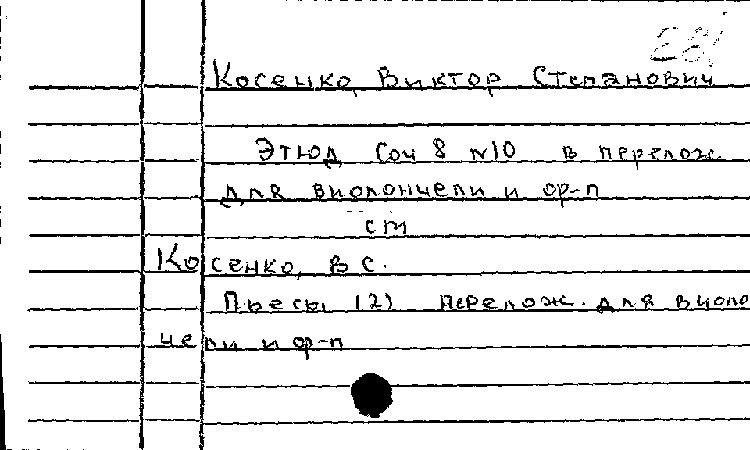 Косенко, Виктор Степанович
Этюд Соч 8 №10 в перелож.
для виолончели и ор-п
см
Косенко, В С.
Пьесы (2) перелож. для виоло
чели и ор-п